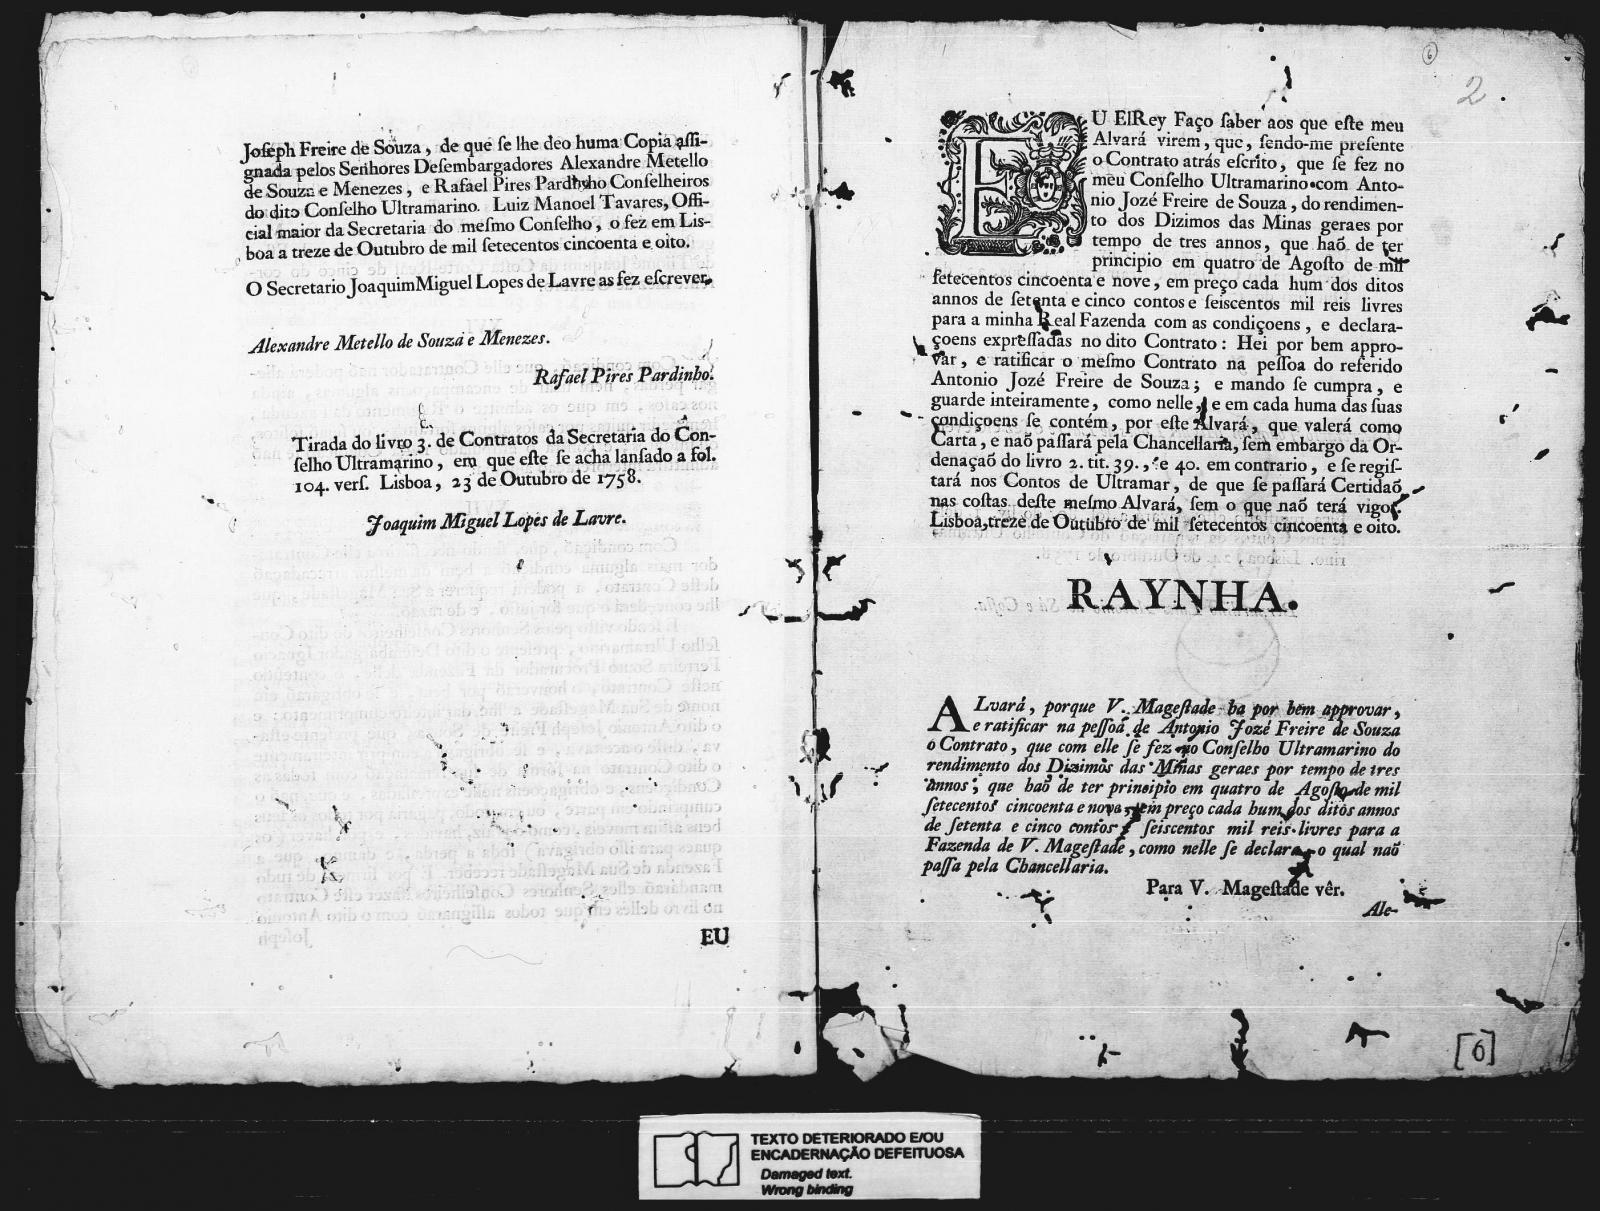 Joſeph Freire de Souza, de que ſe lhe deo huma Copia aſſi-
gnada pelos Senhores Deſembargadores Alexandre Metello
de Souza e Menezes, e Rafael Pires Pardinho Conſelheiros
do dito Conſelho Ultramarino. Luiz Manoel Tavares, Offi-
cial maior da Secretaria do meſmo Conſelho, o fez em Lis-
boa a treze de Outubro de mil ſetecentos cincoenta e oito.
O Secretario Joaquim Miguel Lopes de Lavre as fez eſcrever.
Alexandre Metello de Souza e Menezes.
Rafael Pires Pardinho.
Tirada do livro 3. de Contratos da Secretaria do Con-
ſelho Ultramarino, em que eſte ſe acha lanſado a fol.
104. verſ. Lisboa, 23 de Outubro de 1758.
Joaquim Miguel Lopes de Lavre.
EU
6
2.
EU ElRey Faço ſaber aos que eſte meu
Alvará virem, que, ſendo-me preſente
o Contrato atrás eſcrito, que ſe fez no
meu Conſelho Ultramarino com Anto-
nio Jozé Freire de Souza, do rendimen-
to dos Dizimos das Minas geraes por
tempo de tres annos, que haõ de ter
principio em quatro de Agoſto de mil
ſetecentos cincoenta e nove, em preço cada hum dos ditos
annos de ſetenta e cinco contos e ſeiscentos mil reis livres
para a minha Real Fazenda com as condiçoens, e declara-
çoens expreſſadas no dito Contrato: Hei por bem appro-
var, e ratificar o meſmo Contrato na peſſoa do referido
Antonio Jozé Freire de Souza; e mando ſe cumpra, e
guarde inteiramente, como nelle, e em cada huma das ſuas
condiçoens ſe contém, por eſte Alvará, que valerá como
Carta, e naõ paſſará pela Chancellaria, ſem embargo da Or-
denaçaõ do livro 2. tit. 39., e 40. em contrario, e ſe regiſ-
tará nos Contos de Ultramar, de que ſe paſſará Certidaõ
nas coſtas deſte meſmo Alvará, ſem o que naõ terá vigor.
Lisboa, treze de Outubro de mil ſetecentos cincoenta e oito.
RAYNHA.
ALvará, porque V. Mageſtade ha por bem approvar,
e ratificar na peſſoa de Antonio Jozé Freire de Souza
o Contrato, que com elle ſe fez no Conſelho Ultramarino do
rendimento dos Dizimos das Minas geraes por tempo de tres
annos; que haõ de ter principio em quatro de Agoſto de mil
ſetecentos cincoenta e nove, em preço cada hum dos ditos annos
de ſetenta e cinco contos e ſeiscentos mil reis livres para a
Fazenda de V. Mageſtade, como nelle ſe declara, o qual naõ
paſſa pela Chancellaria.
Para V. Mageſtade vêr.
Ale-
[6]
TEXTO DETERIORADO E/OU
ENCADERNAÇÃO DEFEITUOSA
Damaged text.
Wrong binding